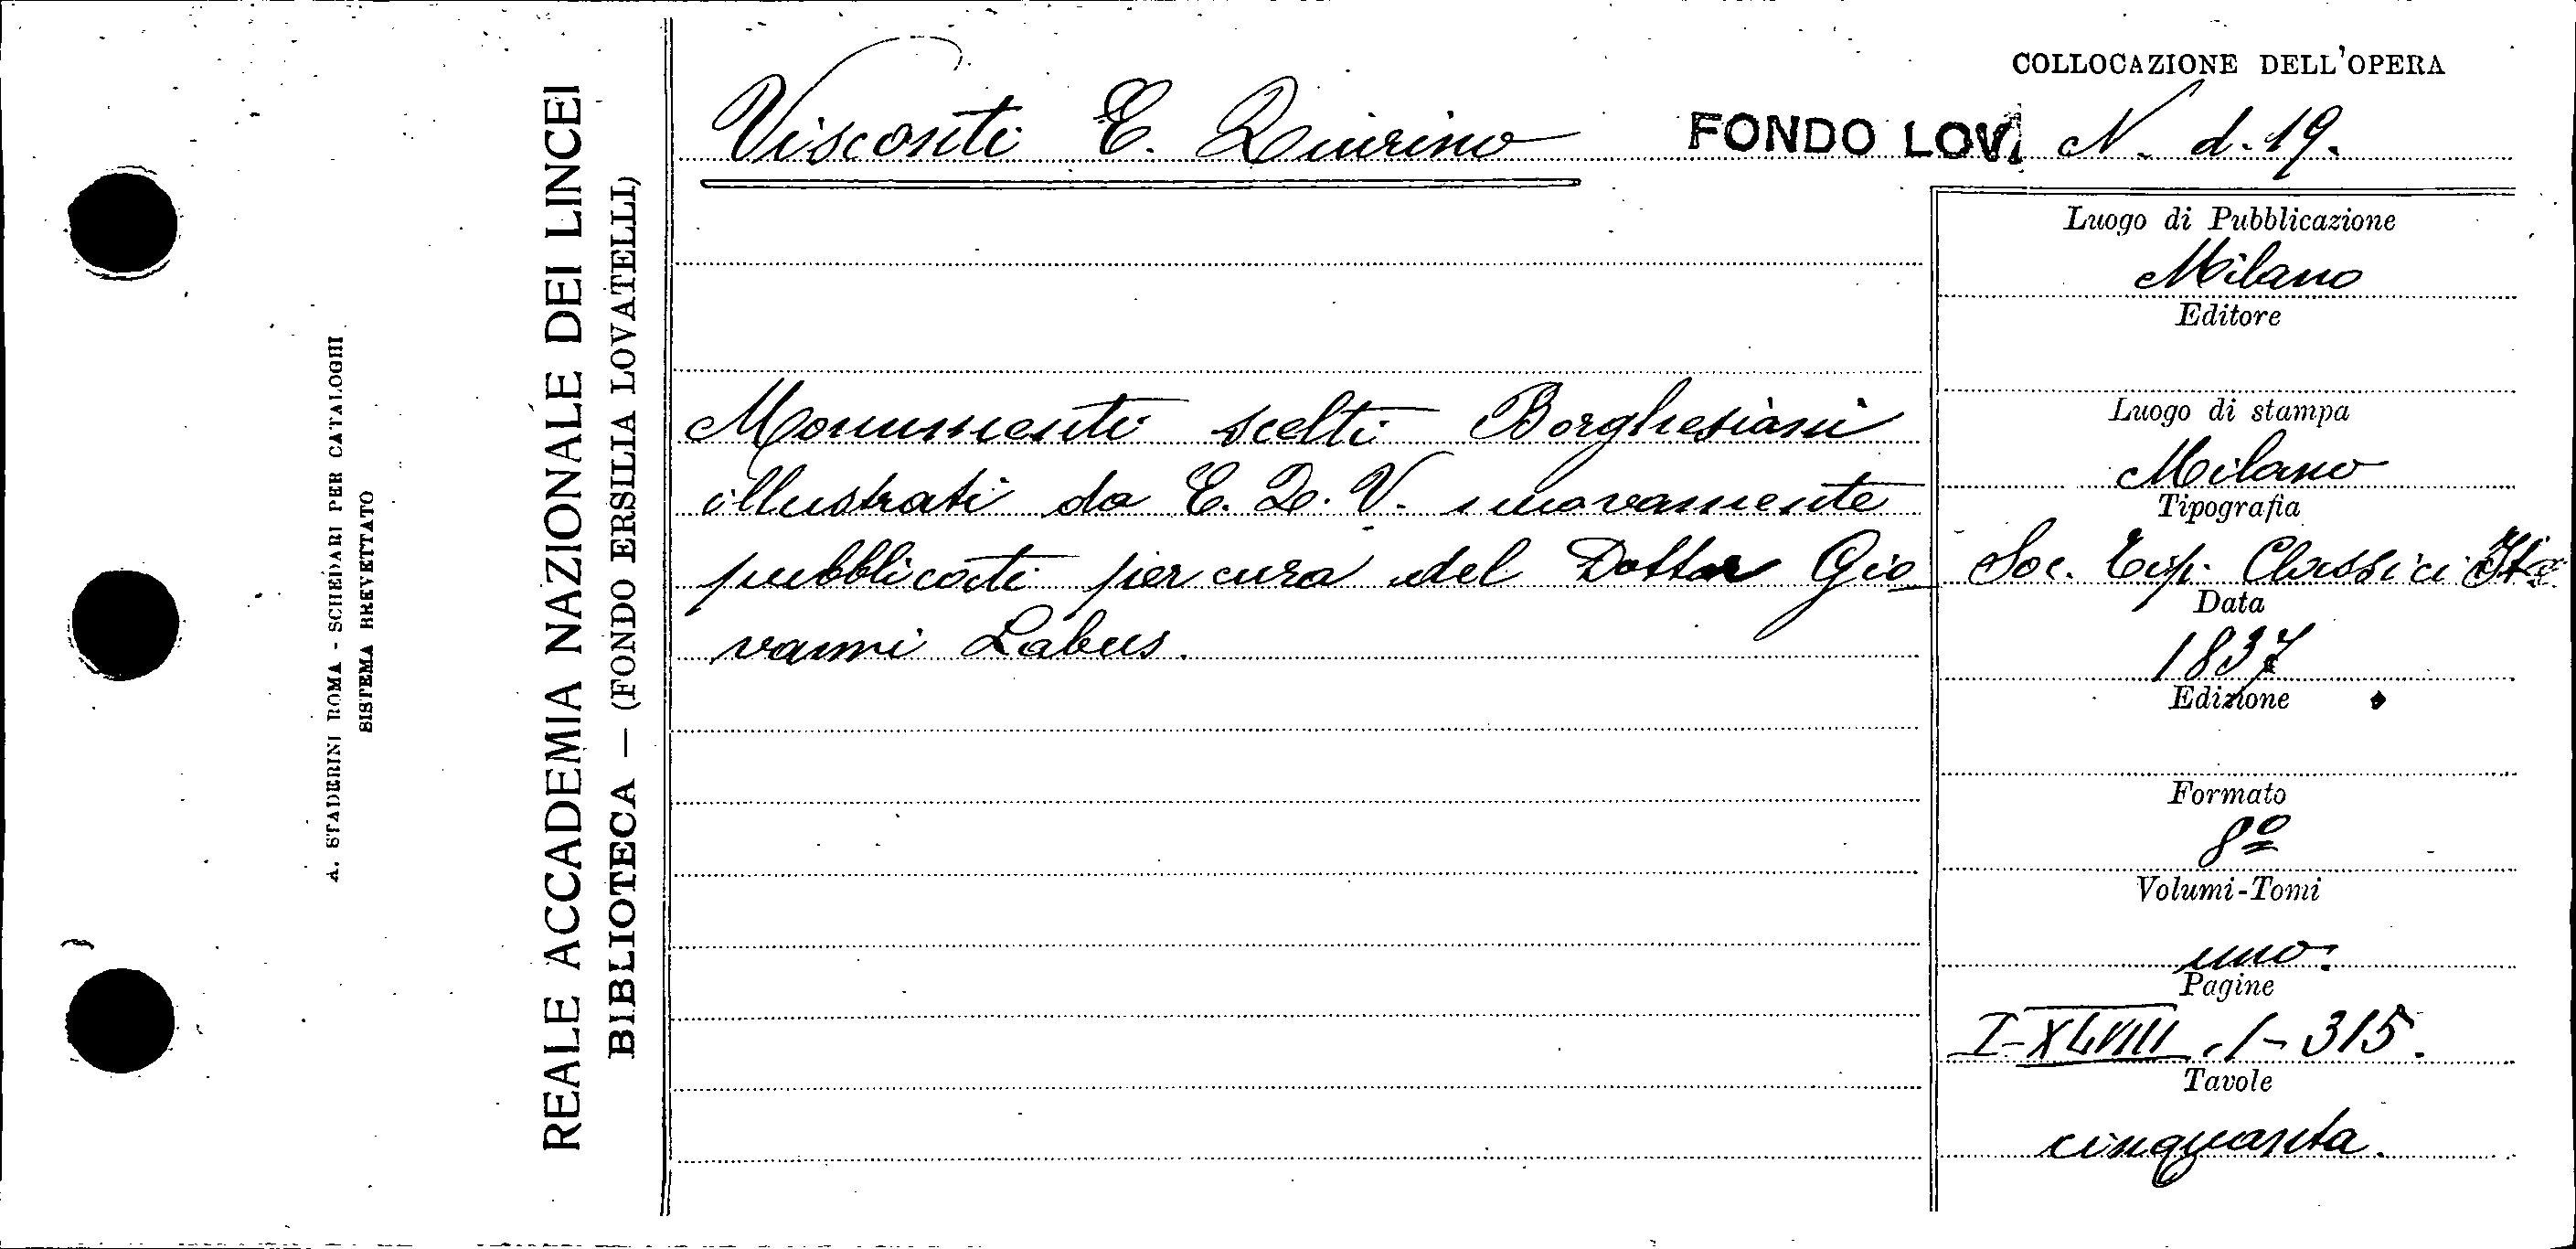 COLLOCAZIONE DELL'OPERA
Visconti E. Quirino
FONDO LOV. N. d. 19.
Monumenti scelti Borghesiani
illustrati da E. Q. V. nuovamente
pubblicati per cura del Dottor Gio
vanni Labus.
Luogo di Pubblicazione
Milano
Editore
Luogo di stampa
Milano
Tipografia
Soc. Tip. Classici Ita
Data
1837
Edizione
Formato
8º
Volumi-Tomi
uno.
Pagine
I-XLVIII, 1-315.
Tavole
cinquanta.
REALE ACCADEMIA NAZIONALE DEI LINCEI
BIBLIOTECA — (FONDO ERSILIA LOVATELLI)
A. STADERINI ROMA - SCHEDARI PER CATALOGHI
SISTEMA BREVETTATO